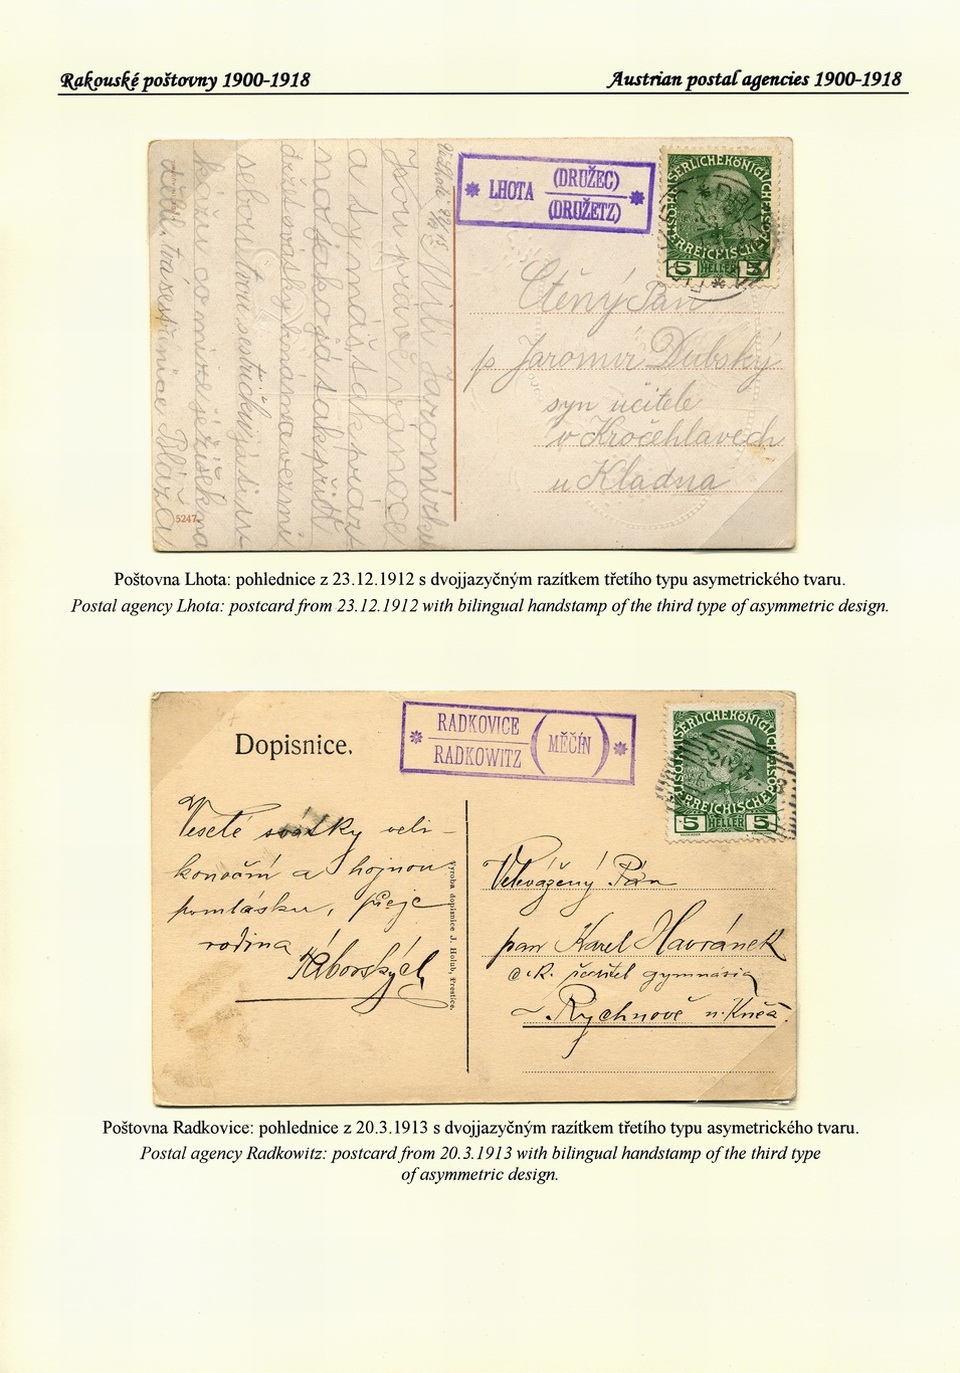 Rakouské poštovny 1900-1918
Austrian postal agencies 1900-1918
LHOTA
(DRUŽEC)
(DRUŽETZ)
5 HELLER 5
Milí Jaromírku
jsou právě vánoce
a ty máš tak prázd
no jako já tak přijď
sebou tvou sestřičku já ti uv
5247.
Ctěný Pan
p Jaromír Dubský
syn učitele
v Kročehlavech
u Kladna
Poštovna Lhota: pohlednice z 23.12.1912 s dvojjazyčným razítkem třetího typu asymetrického tvaru.
Postal agency Lhota: postcard from 23.12.1912 with bilingual handstamp of the third type of asymmetric design.
Dopisnice.
RADKOVICE
RADKOWITZ
(MĚČÍN)
5 HELLER 5
Veselé svátky veli-
konoční a hojnou
pomlásku, přeje
rodina
Táborských
Výroba dopisnice J. Holub, Přeštice.
Velevážený Pán
pan Karel Havránek
c.k. ředitel gymnasia
Rychnově n. Kněž.
Poštovna Radkovice: pohlednice z 20.3.1913 s dvojjazyčným razítkem třetího typu asymetrického tvaru.
Postal agency Radkowitz: postcard from 20.3.1913 with bilingual handstamp of the third type
of asymmetric design.